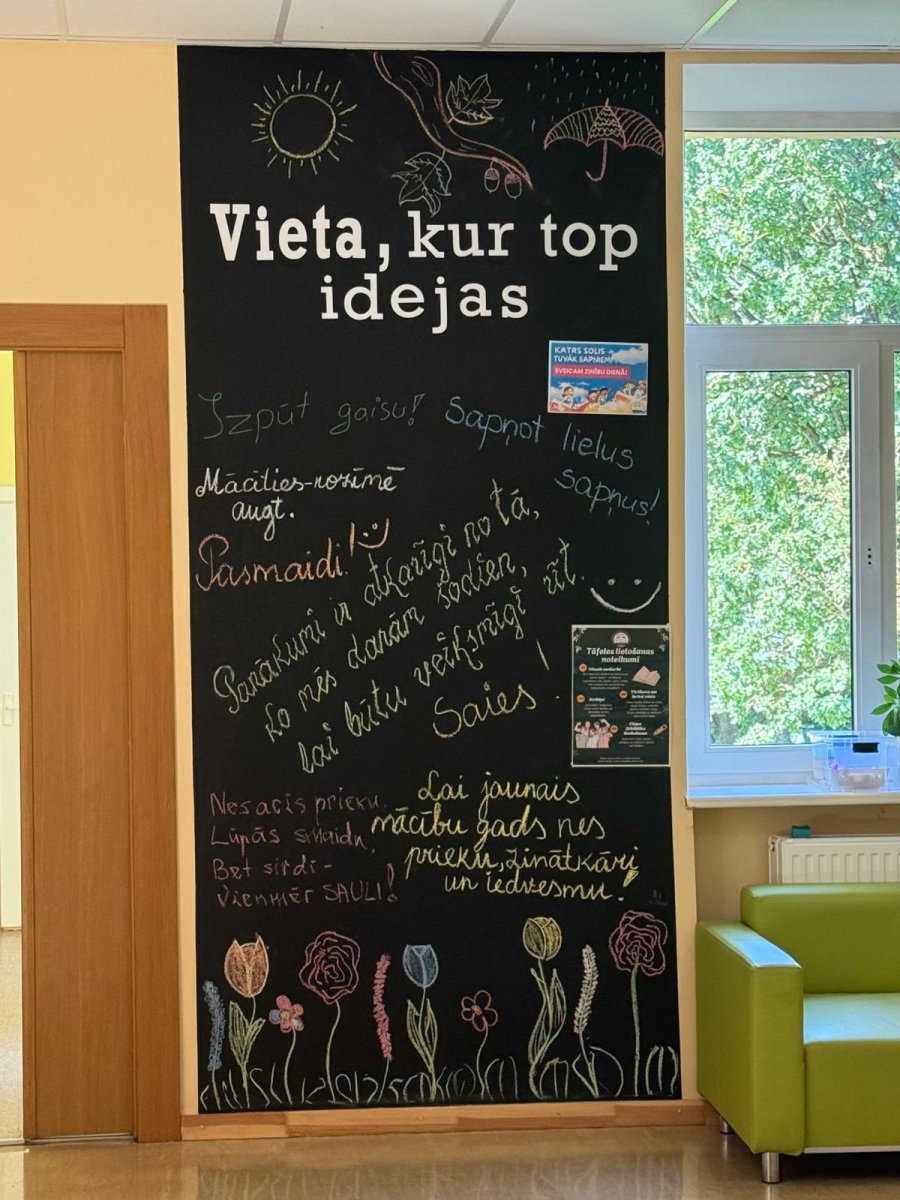 Vieta, kur top
idejas
KATRS SOLIS
TUVĀK SAPŅIEM!
SVEICAM ZINĪBU DIENĀ!
Izpūt gaisu!
Sapņot lielus
sapņus!
Mācīties-nozīmē
augt.
Pasmaidi!
Panākumi ir atkarīgi no tā,
ko mēs darām šodien,
lai būtu veiksmīgi rīt.
Saies!
Tāfeles lietošanas
noteikumi
Nes acīs prieku,
Lūpās smaidu,
Bet sirdī-
Vienmēr SAULI!
Lai jaunais
mācību gads nes
prieku, zinātkāri
un iedvesmu!